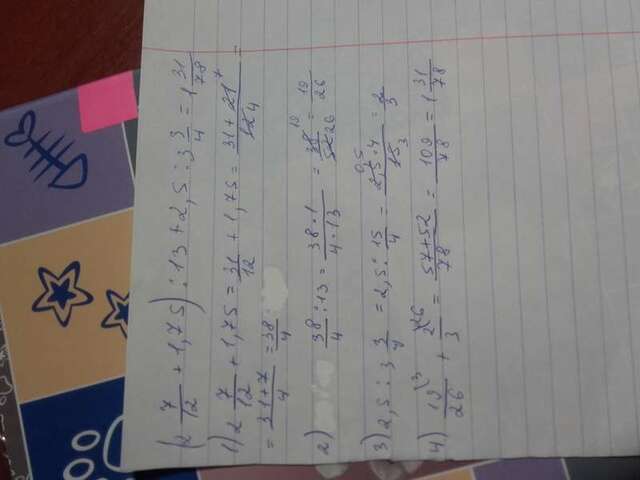 (2 7/12 + 1,75) : 13 + 2,5 : 3 3/4 = 1 31/78
1) 2 7/12 + 1,75 = 31/12 + 1,75 = (31 + 21 7)/(12 4) =
= (31+7)/4 = 38/4
2) 38/4 : 13 = (38 · 1)/(4 · 13) = (38 19)/(52 26) = 19/26
3) 2,5 : 3 3/4 = 2,5 : 15/4 = (0,5 2,5 · 4)/(15 3) = 2/3
4) 19\3/26 + 2\26/3 = (57+52)/78 = 109/78 = 1 31/78